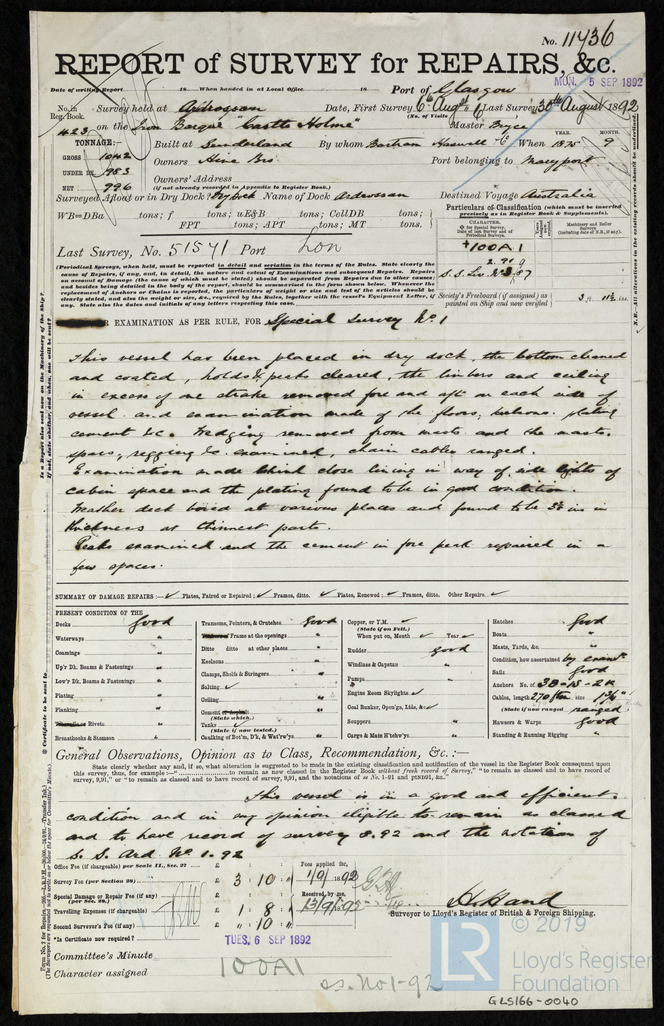 No. 11436
REPORT of SURVEY for REPAIRS, &c.
Date of writing Report 18 When handed in at Local Office 18 Port of Glasgow
MON. 5 SEP 1892
No. in Reg. Book. Survey held at Ardrossan Date, First Survey 6th Augt Last Survey 30th August 1892
(No. of Visits 6)
423 on the Iron Barque "Castle Holme" Master Bryce
TONNAGE:— Built at Sunderland By whom Bartram Haswell & Co When 1875 9
YEAR. MONTH.
GROSS 1042
UNDER DK. 983 Owners Hine Bros. Port belonging to Maryport
NET 996 Owners' Address
(if not already recorded in Appendix to Register Book.)
Surveyed Afloat or in Dry Dock? Dry Dock Name of Dock Ardrossan Destined Voyage Australia
WB=DBa tons; f tons; uE&B tons; CellDB tons;
FPT tons; APT tons; MT tons.
Particulars of Classification (which must be inserted precisely as in Register Book & Supplements).
CHARACTER.
Last Survey, No. 51571 Port Lon
+100A1
2.91
(Periodical Surveys, when held, must be reported in detail and seriatim in the terms of the Rules. State clearly the cause of Repairs, if any, and, in detail, the nature and extent of Examinations and subsequent Repairs. Repairs on account of Damage (the cause of which must be stated) should be separated from Repairs due to other causes; and besides being detailed in the body of the report, should be summarised in the form shown below. Whenever the replacement of Anchors or Chains is reported, the particulars of weight or size and test of the articles should be clearly stated, and also the weight or size, &c., required by the Rules, together with the vessel's Equipment Letter, if any. State also the dates and initials of any letters respecting this case.
Society's Freeboard (if assigned) as painted on Ship and now verified 3 ft. 11½ ins.
EXAMINATION AS PER RULE, FOR Special Survey No. 1
This vessel has been placed in dry dock, the bottom cleaned
and coated, holds & peaks cleared, the limbers and ceiling
in excess of one strake removed fore and aft on each side of
vessel and examination made of the floors, keelsons, plating
cement &c. Wedging removed from masts and the masts,
spars, rigging &c. examined, chain cables ranged.
Examination made behind close lining in way of side lights of
cabin space and the plating found to be in good condition.
Weather deck bored at various places and found to be 3⅛ ins in
thickness at thinnest part.
Peaks examined and the cement in fore peak repaired in a
few spaces.
SUMMARY OF DAMAGE REPAIRS:— ✓ Plates, Faired or Repaired; ✓ Frames, ditto. ✓ Plates, Renewed; ✓ Frames, ditto. Other Repairs. ✓
PRESENT CONDITION OF THE
Decks Good
Waterways "
Coamings "
Up'r Dk. Beams & Fastenings "
Low'r Dk. Beams & Fastenings "
Plating "
Planking
Rivets "
Breasthooks & Stemson "
Transoms, Pointers, & Crutches Good
Frame at the openings "
Ditto ditto at other places "
Keelsons "
Clamps, Shelfs & Stringers "
Salting ✓
Ceiling "
Cement "
(State which.)
Tanks ✓
(State if now tested.)
Caulking of Bot'm, D'k, & Wat'rw'ys "
Copper, or Y.M. ✓
(State if on Felt.)
When put on, Month ✓ Year ✓
Rudder Good
Windlass & Capstan "
Pumps "
Engine Room Skylights ✓
Coal Bunker, Open'gs, Lids, &c ✓
Scuppers "
Cargo & Main H'tchw'ys "
Hatches Good
Boats "
Masts, Yards, &c. "
Condition, how ascertained by exam.
Sails Good
Anchors No. of 3B-1S-2K
Cables, length 270 fm size 1 9/16"
(State if now ranged) ranged.
Hawsers & Warps Good
Standing & Running Rigging "
General Observations, Opinion as to Class, Recommendation, &c.:—
State clearly whether any, and if so, what alteration is suggested to be made in the existing classification and notification of the vessel in the Register Book consequent upon
this survey, thus, for example:—" to remain as now classed in the Register Book without fresh record of Survey," "to remain as classed and to have record of
survey, 9,91," or "to remain as classed and to have record of survey, 9,91, and the notations of ss No. 1-91 and ptNB91, &c."
This vessel is in a good and efficient
condition and in my opinion eligible to remain as classed
and to have record of survey 8.92 and the notation of
S. S. Ard. No 1. 92
Office Fee (if chargeable) per Scale II., Sec. 27 £ : :
Survey Fee (per Section 28) £ 3 : 10 : "
Special Damage or Repair Fee (if any) (per Sec. 28.) £ : :
Travelling Expenses (if chargeable) £ 1 : 8 :
Second Surveyor's Fee (if any) £ " : 10 : "
Fees applied for, 1/9/1892
Received by me, 13/9/1892
Surveyor to Lloyd's Register of British & Foreign Shipping.
*Is Certificate now required?
TUES. 6 SEP 1892
Committee's Minute
Character assigned 100A1
ss. No 1-92
© 2019
LR
Lloyd's Register
Foundation
GLS166-0040